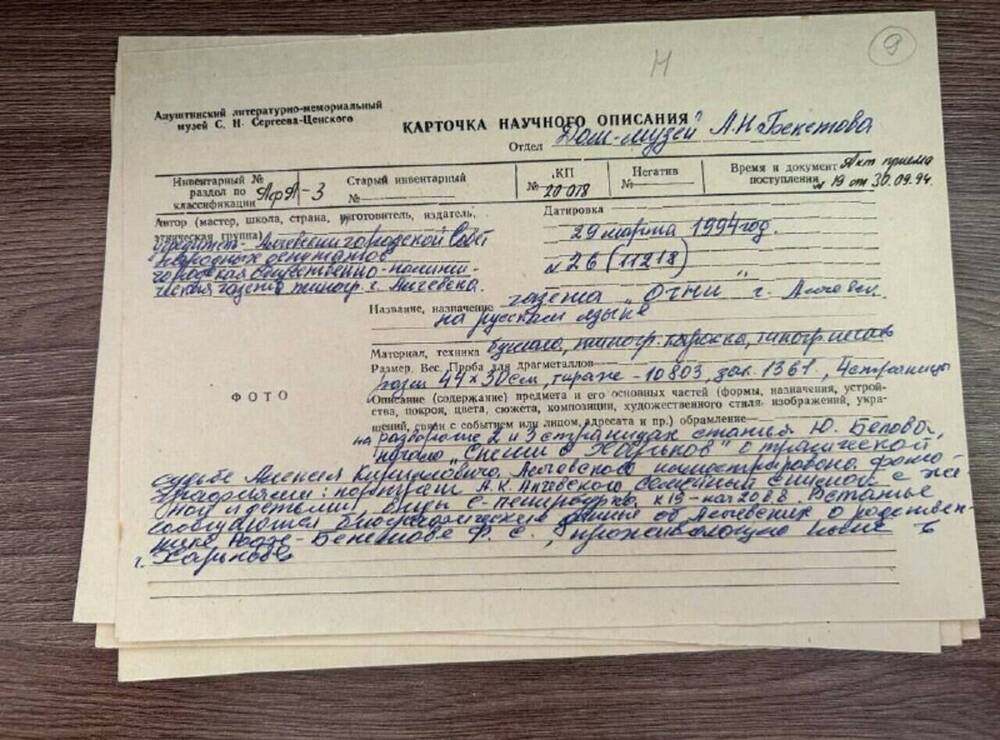 9
Н
Алуштинский литературно-мемориальный
музей С. Н. Сергеева-Ценского
КАРТОЧКА НАУЧНОГО ОПИСАНИЯ
Отдел Дом-музей А.Н. Бекетова
Инвентарный №
раздел по
классификации АсрА-3
Старый инвентарный
№
КП
№ 20078
Негатив
№
Время и документ Акт приема
поступления № 19 от 30.09.94.
Автор (мастер, школа, страна, изготовитель, издатель,
этническая группа)
Учредитель - Алчевский городской Совет
народных депутатов
городская общественно-полити-
ческая газета типогр. г. Алчевска.
Датировка
29 марта 1994 год.
№ 26 (11218)
Название, назначение газета „Огни" г. Алчевск.
на русском языке
Материал, техника бумага, типогр. краска, типогр. печать
Размер. Вес. Проба для драгметаллов
разм 44 х 30 см, тираж - 10 803, зак. 1361, 4 страницы
Описание (содержание) предмета и его основных частей (формы, назначения, устрой-
ства, покроя, цвета, сюжета, композиции, художественного стиля изображений, укра-
щений, связи с событием или лицом, адресата и пр.) обрамление
на развороте 2 и 3 страницах статья Ю. Белова,
начало „ в Харьков" о трагической
судьбе Алексея Кирилловича Алчевского иллюстрирована фото-
графиями: портрет А.К Алчевского семейный снимок с же
ной и детьми, виды С-Петербурга к 19 - нач 20 в в. В статье
сообщаются биографические данные об Алчевских о родствен-
нике - Бекетове Ф. С., проживающую ныне в
г. Харькове
ФОТО